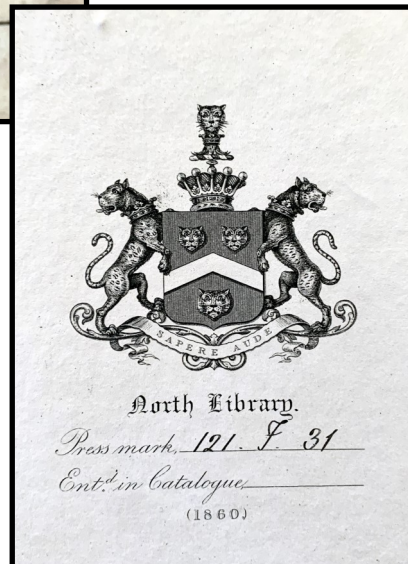 SAPERE AUDE
North Library.
Press mark, 121. F. 31
Ent.d in Catalogue,
(1860)